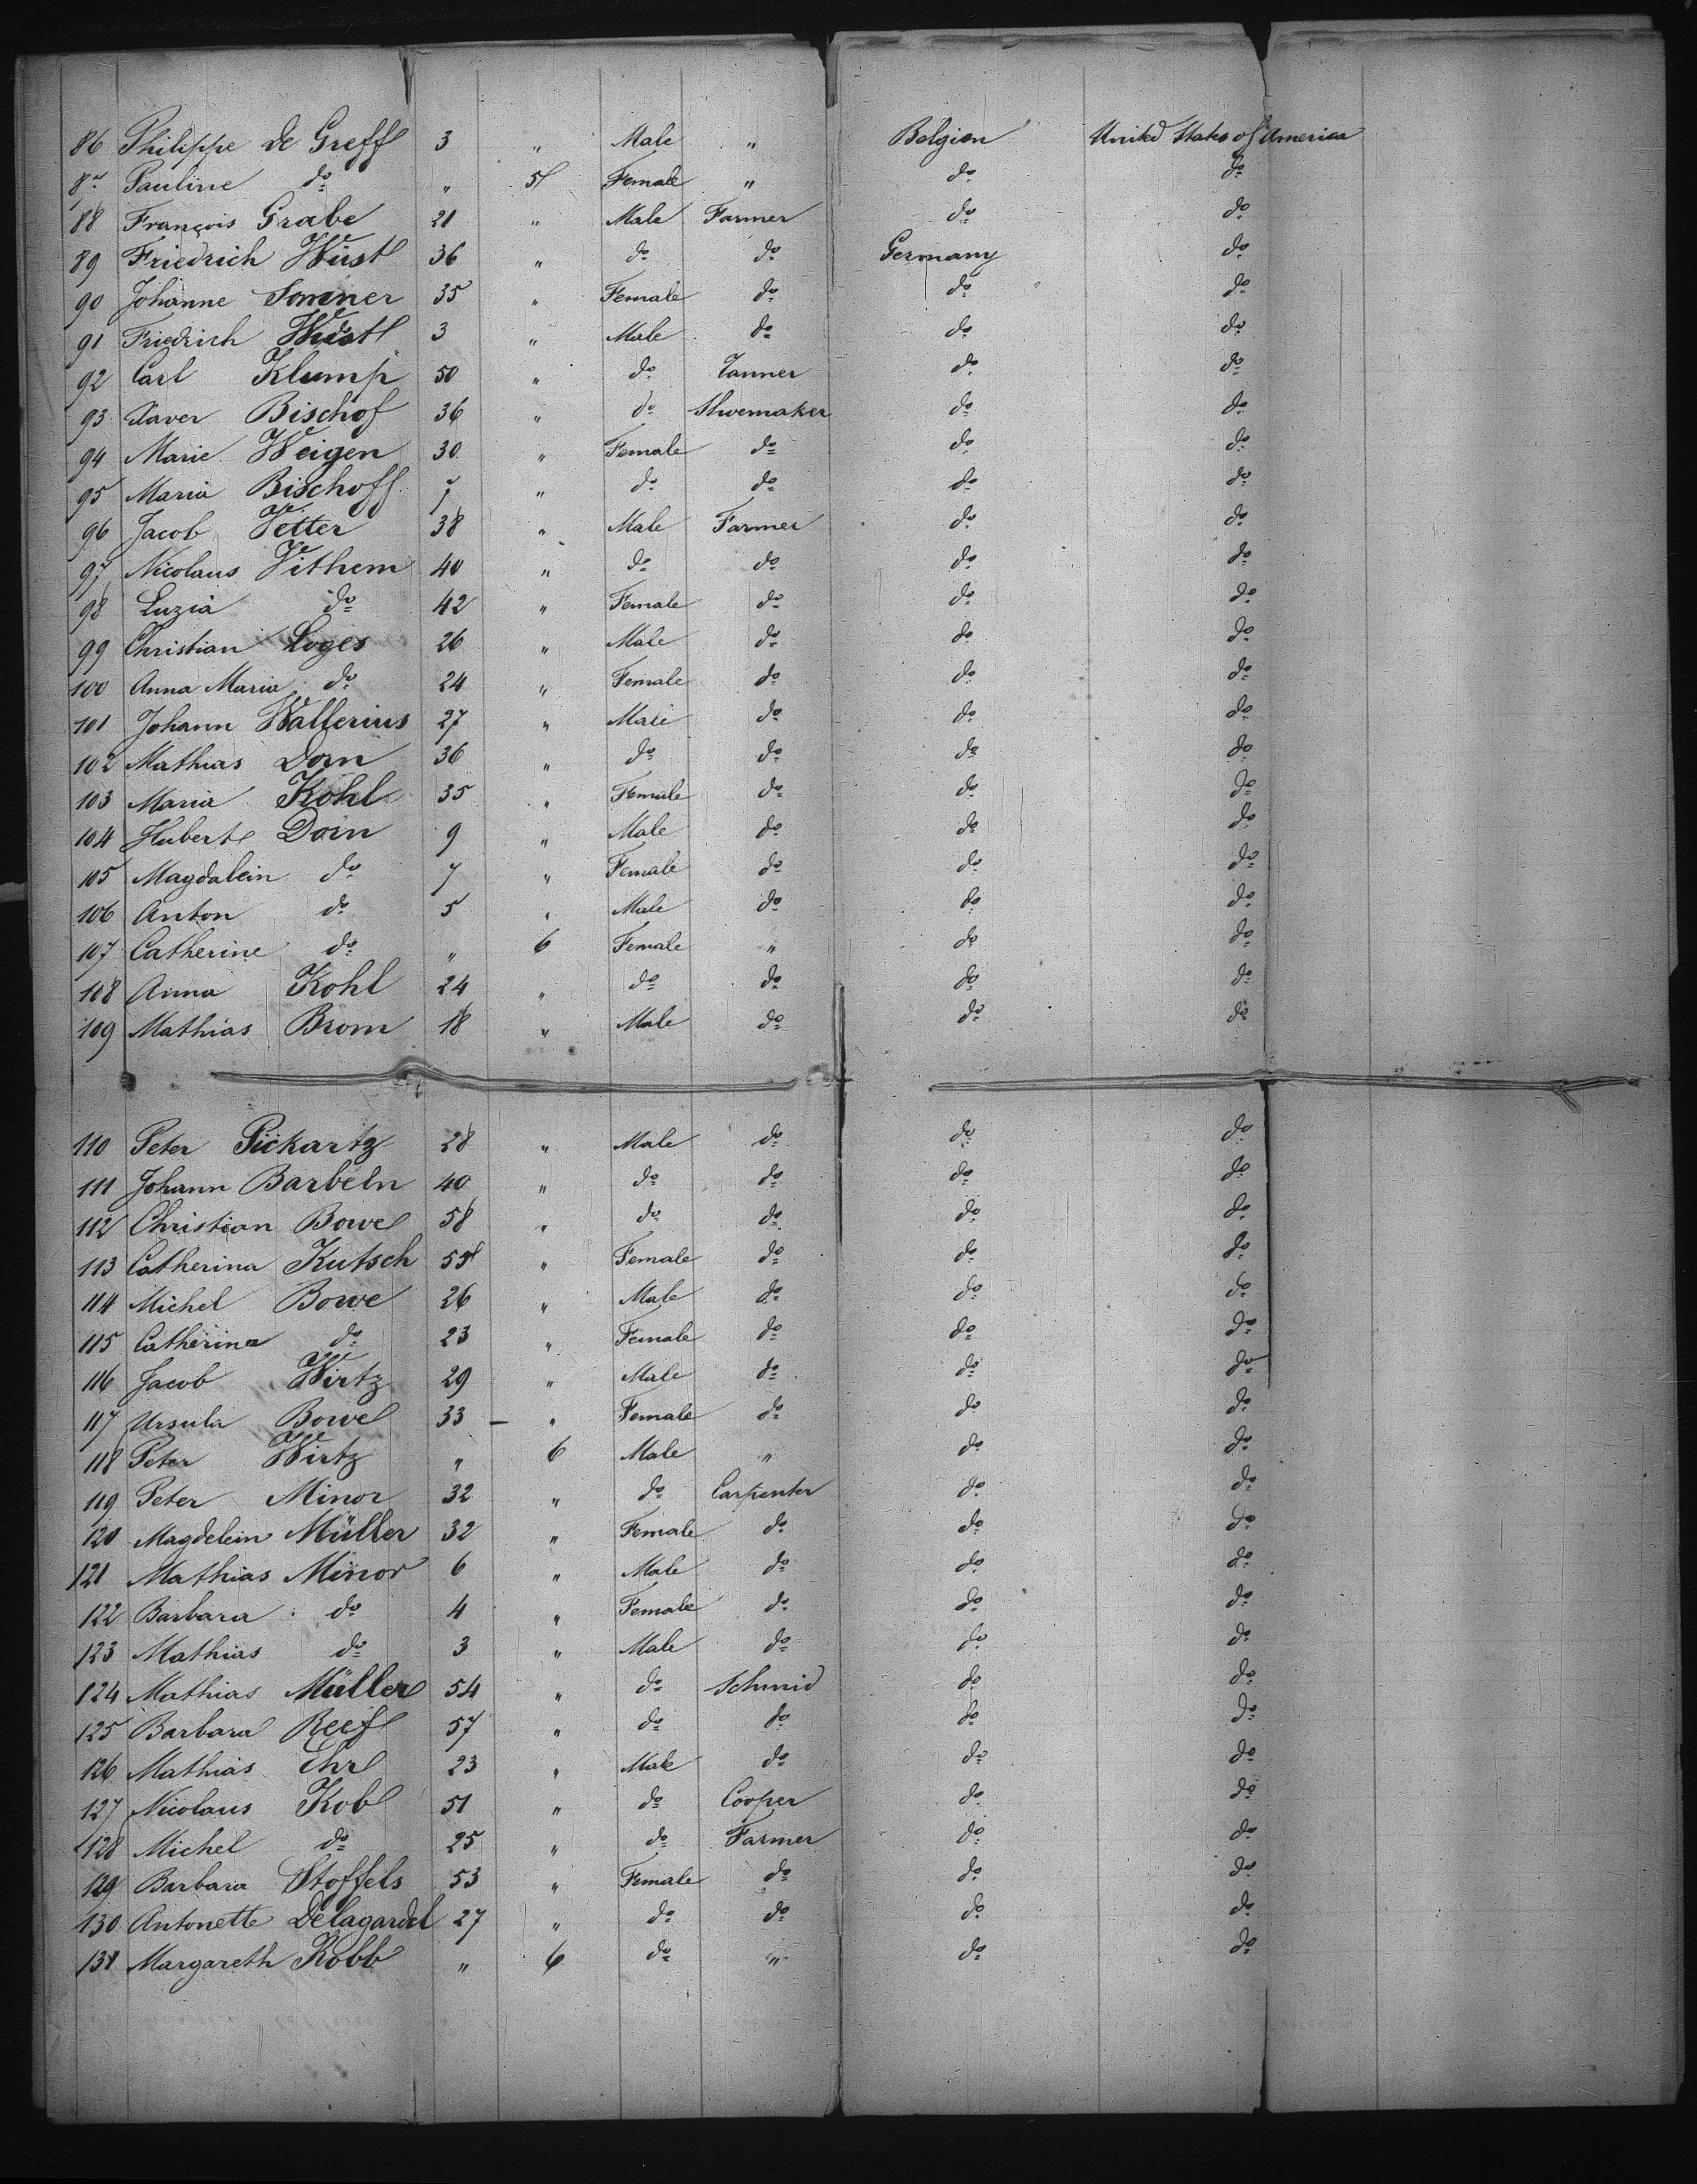 86 Philippe de Greff 3 " Male " Belgien United States of America
87 Pauline do " 5 Female " do do
88 François Grabe 21 " Male Farmer do do
89 Friedrich Wüst 36 " do do Germany do
90 Johanne Sommer 35 " Female do do do
91 Friedrich Wüst 3 " Male do do do
92 Carl Klump 50 " do Tanner do do
93 Xaver Bischof 36 " do Shoemaker do do
94 Marie Weigen 30 " Female do do do
95 Maria Bischoff 7 " do do do do
96 Jacob Vetter 38 " Male Farmer do do
97 Nicolaus Vithem 40 " do do do do
98 Luzia do 42 " Female do do do
99 Christian Loges 26 " Male do do do
100 Anna Maria do 24 " Female do do do
101 Johann Wallerius 27 " Male do do do
102 Mathias Dom 36 " do do do do
103 Maria Kohl 35 " Female do do do
104 Hubert Doin 9 " Male do do do
105 Magdalein do 7 " Female do do do
106 Anton do 5 " Male do do do
107 Catherine do " 6 Female " do do
108 Anna Kohl 24 " do do do do
109 Mathias Brom 18 " Male do do do
110 Peter Pickartz 28 " Male do do do
111 Johann Barbeln 40 " do do do do
112 Christian Bowe 58 " do do do do
113 Catherina Kutsch 55 " Female do do do
114 Michel Bowe 26 " Male do do do
115 Catherina do 23 " Female do do do
116 Jacob Wirtz 29 " Male do do do
117 Ursula Bowe 33 - " Female do do do
118 Peter Wirtz " 6 Male " do do
119 Peter Minor 32 " do Carpenter do do
120 Magdelein Müller 32 " Female do do do
121 Mathias Minor 6 " Male do do do
122 Barbara do 4 " Female do do do
123 Mathias do 3 " Male do do do
124 Mathias Müller 54 " do Schmid do do
125 Barbara Reef 57 " do do do do
126 Mathias Ehr 23 " Male do do do
127 Nicolaus Kob 51 " do Cooper do do
128 Michel do 25 " do Farmer do do
129 Barbara Stoffels 53 " Female do do do
130 Antonette Delagardel 27 " do do do do
131 Margareth Kobb " 6 do " do do